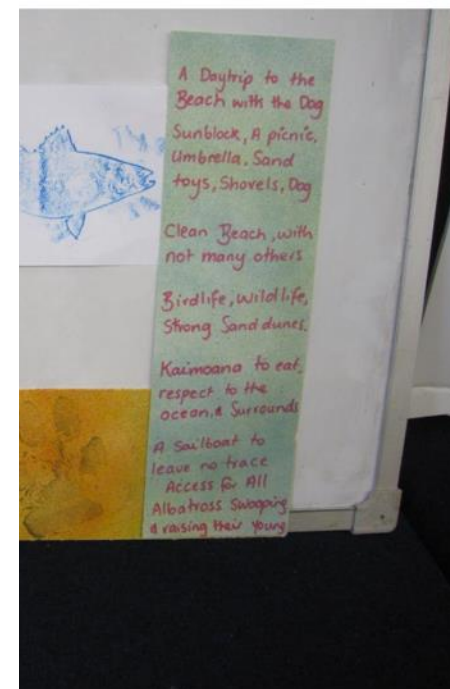 A Daytrip to the
Beach with the Dog
Sunblock, A picnic,
Umbrella, Sand
toys, Shovels, Dog
Clean Beach, with
not many others
Birdlife, wildlife,
Strong Sand dunes.
Kaimoana to eat,
respect to the
ocean, & Surrounds
A Sailboat to
leave no trace
Access for All
Albatross Swooping
& raising their young